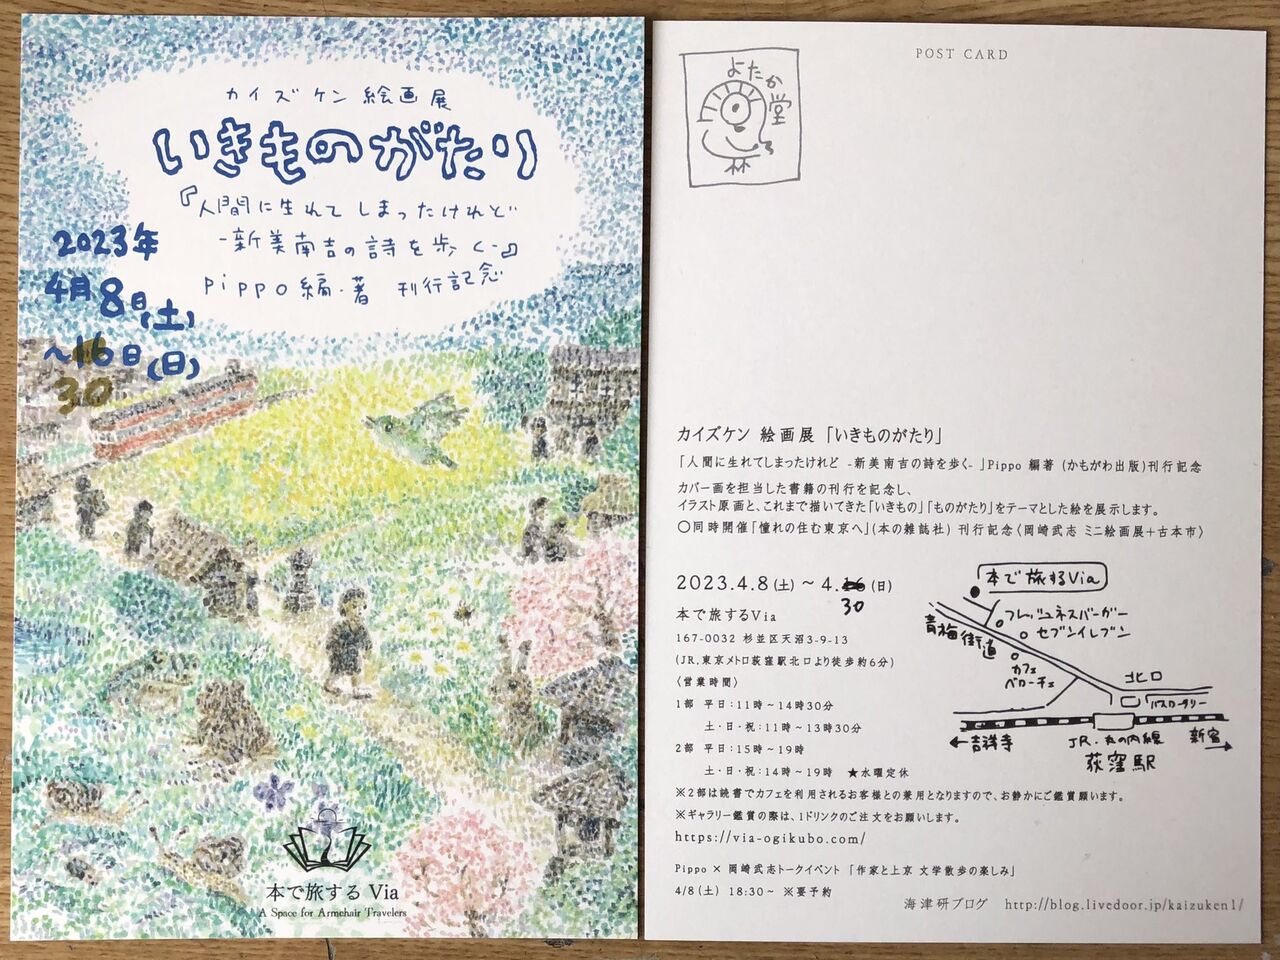 カイズケン 絵画展
いきものがたり
『人間に生れてしまったけれど
-新美南吉の詩を歩く-』
Pippo 編・著 刊行記念
2023年
4月8日(土)
～16日(日)
30
本で旅する Via
A Space for Armchair Travelers
POST CARD
よたか堂
カイズケン 絵画展「いきものがたり」
「人間に生れてしまったけれど -新美南吉の詩を歩く- 」Pippo 編著 (かもがわ出版)刊行記念
カバー画を担当した書籍の刊行を記念し、
イラスト原画と、これまで描いてきた「いきもの」「ものがたり」をテーマとした絵を展示します。
〇同時開催「憧れの住む東京へ」(本の雑誌社) 刊行記念〈岡崎武志 ミニ絵画展+古本市〉
2023.4.8(土) ～ 4.16(日)
30
本で旅するVia
167-0032 杉並区天沼3-9-13
(JR,東京メトロ荻窪駅北口より徒歩約6分)
〈営業時間〉
1部 平日:11時～14時30分
土・日・祝:11時～13時30分
2部 平日:15時～19時
土・日・祝:14時～19時 ★水曜定休
※2部は読書でカフェを利用されるお客様との兼用となりますので、お静かにご鑑賞願います。
※ギャラリー鑑賞の際は、1ドリンクのご注文をお願いします。
https://via-ogikubo.com/
Pippo × 岡崎武志トークイベント 「作家と上京 文学散歩の楽しみ」
4/8(土) 18:30～ ※要予約
海津研ブログ http://blog.livedoor.jp/kaizuken1/
本で旅するVia
フレッシュネスバーガー
セブンイレブン
青梅街道
カフェ
ベローチェ
北口
バスロータリー
←吉祥寺
JR・丸の内線
荻窪駅
新宿→